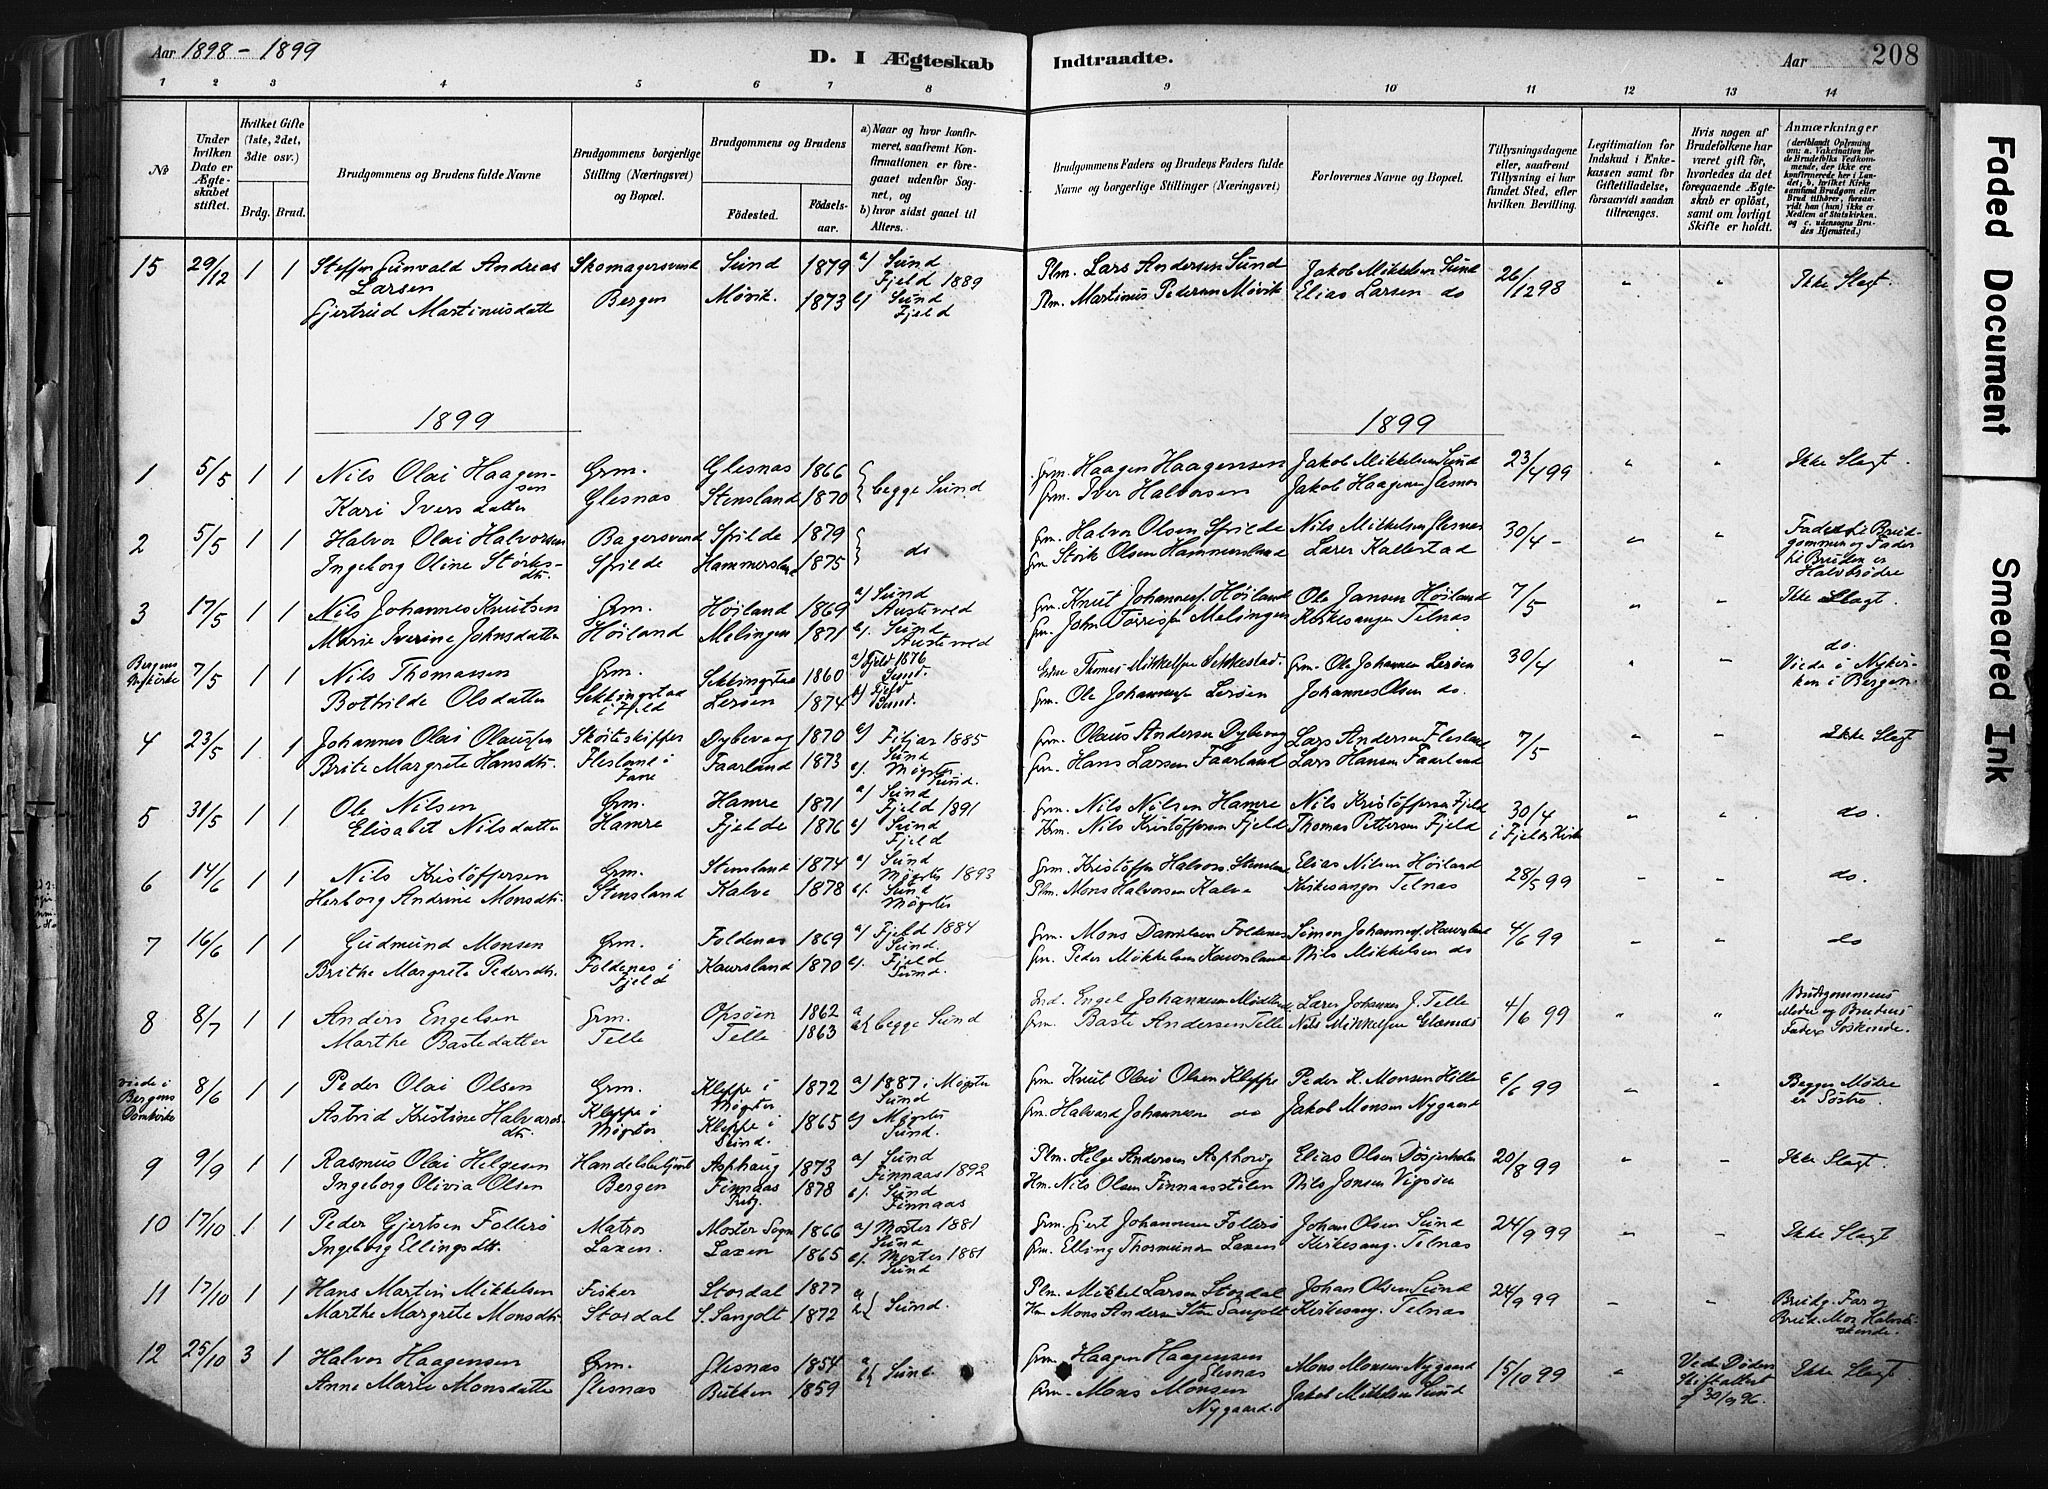 Aar 1898 - 1899
D. I Ægteskab Indtraadte.
Aar 208
1 2 3 4 5 6 7 8 9 10 11 12 13 14
No
Under hvilken Dato er Ægteskabet stiftet.
Hvilket Gifte (1ste, 2det, 3die osv.)
Brdg. Brud.
Brudgommens og Brudens fulde Navne
Brudgommens borgerlige Stilling (Næringsvei) og Bopæl.
Brudgommens og Brudens
Fødested. Fødselsaar.
a) Naar og hvor konfirmeret, saafremt Konfirmationen er foregaaet udenfor Sognet, og
b) hvor sidst gaaet til Alters.
Brudgommens Faders og Brudens Faders fulde Navne og borgerlige Stillinger (Næringsvei)
Forlovernes Navne og Bopæl.
Tillysningsdagene eller, saafremt Tillysning ei har fundet Sted, efter hvilken Bevilling.
Legitimation for Indskud i Enkekassen samt for Giftetilladelse, forsaavidt saadan tiltrænges.
Hvis nogen af Brudefolkene har været gift før, hvorledes da det foregaaende Ægteskab er opløst, samt om lovligt Skifte er holdt.
Anmærkninger (deriblandt Oplysning om: a. Vakcination for de Brudefolks Vedkommende, der ikke ere konfirmerede her i Landet; b. hvilket Kirkesamfund Brudgom eller Brud tilhører, forsaavidt han (hun) ikke er Medlem af Statskirken. og c. udensogns Brudes Hjemsted.)
15 29/12 1 1 Steffen Sunvald Andreas Skomagersvend Sund 1879 a) Sund Plm. Lars Andersen Sund Jakob Mikkelsen Sund 26/12 98 " " Ikke Slegt.
Larsen Fjeld 1889
Gjertrud Martinusdatter Bergen Møvik. 1873 b) Sund Plm. Martinus Pedersen Møvik Elias Larsen do
Fjeld
1899 1899
1 5/5 1 1 Nils Olai Haagen- Grm. Glesnæs 1866 begge Sund Grm. Haagen Haagensen Jakob Mikkelsen Sund 23/4 99 " " Ikke Slegt.
sen
Kari Iversdatter Glesnæs Stensland 1870 Grm. Iver Halvorsen Jakob Haagensen Glesnæs
2 5/5 1 1 Halvor Olai Halvorsen Bagersvend Spilde 1879 do Grm. Halvor Olsen Spilde Nils Mikkelsen Glesnæs 30/4 - " " Fader til Brud-
gommen og Fader
Ingeborg Oline Størks- Spilde Hammersland 1875 Grm. Størk Olsen Hammersland Lærer Kallestad til Bruden er
dtr. Halvbrødre
3 17/5 1 1 Nils Johannes Knutsen Grm. Høiland 1869 a) Sund Grm. Knut Johannesen Høiland Ole Jansen Høiland 7/5 " " Ikke Slegt.
Austevold
Marie Iverine Johnsdatter Høiland Melingen 1871 b). Sund Grm. John Tørrisen Melingen Kirkesanger Telnæs
Austevold
Bergens Nykirke 7/5 1 1 Nils Thomassen Grm. Sekkingstad 1860 a) Fjeld 1876 Thomas Mikkelsen Sekkestad. Grm. Ole Johannesen Lerøen 30/4 " " do.
Sund. Viede i Nykir-
Bothilde Olsdatter Sekkingstad i Fjeld Lerøen 1874 b) Fjeld Sund. Grm. Ole Johannesen Lerøen Johannes Olsen do. ken i Bergen.
4 23/5 1 1 Johannes Olai Olaussen Skøiteskipper Dybevaag 1870 a) Fitjar 1885 Grm. Olaus Andersen Dybvaag Lars Andersen Flesland 7/5 " " Ikke Slegt
Sund
Brite Margrete Hansdtr. Flesland i Fane Faarland 1873 b). Møgster Sund. Grm. Hans Larsen Faarland Lars Hansen Faarland
5 31/5 1 1 Ole Nilsen Grm. Hamre 1871 a) Sund Grm. Nils Nilsen Hamre Nils Kristoffersen Fjeld 30/4 " " do.
Fjeld 1891
Elisabet Nilsdatter Hamre Fjelde 1876 b) Sund Krm. Nils Kristoffersen Fjeld Thomas Pettersen Fjeld i Fjelds Kirke
Fjeld
6 14/6 1 1 Nils Kristoffersen Grm. Stensland 1874 a) Sund Grm. Kristoffer Halvors. Stensland Elias Nilsen Høiland 28/5 99 " " do.
Møgster 1893
Herborg Andrine Monsdtr. Stensland Kalve 1878 b). Sund Plm. Mons Halvorsen Kalve Kirkesanger Telnæs
Møgster
7 16/6 1 1 Gudmund Monsen Grm. Foldenæs 1869 a) Fjeld 1884 Grm. Mons Danielsen Foldenæs Simon Johannes. Kaursland 4/6 99 " " do
Sund.
Brithe Margrete Pedersdtr. Foldenæs i Fjeld Kaursland 1870 b). Fjeld Grm. Peder Mikkelsen Kaursland Nils Mikkelsen do
Sund.
8 8/7 1 1 Anders Engelsen Grm. Opsøen 1862 a b begge Sund Ind. Engel Johannesen Lærer Johannes J. Telle 4/6 99 " " Brudgommens
Moder og Brudens
Marthe Bastedatter Telle Telle 1863 Grm. Baste Andersen Telle Nils Mikkelsen Glesnæs Fader Søskende.
viede i Bergens Domkirke 8/6 1 1 Peder Olai Olsen Grm. Kleppe i Møgster 1872 a) 1887 i Møgster Grm. Knut Olai Olsen Kleppe Peder K. Monsen Hille 6/6 99 " Begges Mødre
Sund er Søstre.
Astrid Kristine Halvards- Kleppe i Møgster Kleppe i Sund. 1865 b) Møgster Grm. Halvard Johannesen do Jakob Monsen Nygaard
dtr. Sund.
9 9/9 1 1 Rasmus Olai Helgesen Handelsbetjent Asphaug 1873 a) Sund Plm. Helge Andersen Asphoug Elias Olsen 20/8 99 " " Ikke Slegt.
Finnaas 1892
Ingeborg Olivia Olsen Bergen Finnaas Prstg. 1878 b). Sund Hm. Nils Olsen Finnaasstølen Nils Jonsen Vigsøen
Finnaas
10 17/10 1 1 Peder Gjertsen Follesø Matros Moster Sogn 1866 a) Moster 1881 Grm. Gjert Johannesen Follesø Johan Olsen Sund 24/9 99 " " Ikke Slegt
Sund
Ingeborg Ellingsdtr. Laxen. Laxen 1865 b). Moster 1881 Grm. Elling Thormunsen Laxen Kirkesang. Telnæs
Sund
11 17/10 1 1 Hans Martin Mikkelsen Fisker Stordal 1877 a b Sund. Plm. Mikkel Larsen Stordal Johan Olsen Sund 24/9 99 " " Brudg. Far og
Marthe Margrete Monsdtr. Stordal S. Sangolt 1872 Hm Mons Andersen Store Sangolt Kirkesang. Telnæs Brud. Mor Halvsø-
skende.
12 25/10 3 1 Halvor Haagensen Grm. Glesnæs 1854 a b Sund Grm. Haagen Haagensen Mons Monsen Nygaard 15/10 99 " Ved Døden Ikke Slegt
Glesnæs Skifteattest
Anne Marie Monsdatter Glesnæs Bukken 1859 Grm. Mons Monsen Jakob Mikkelsen Sund af 30/9 96
Nygaard.
Faded Document
Smeared Ink